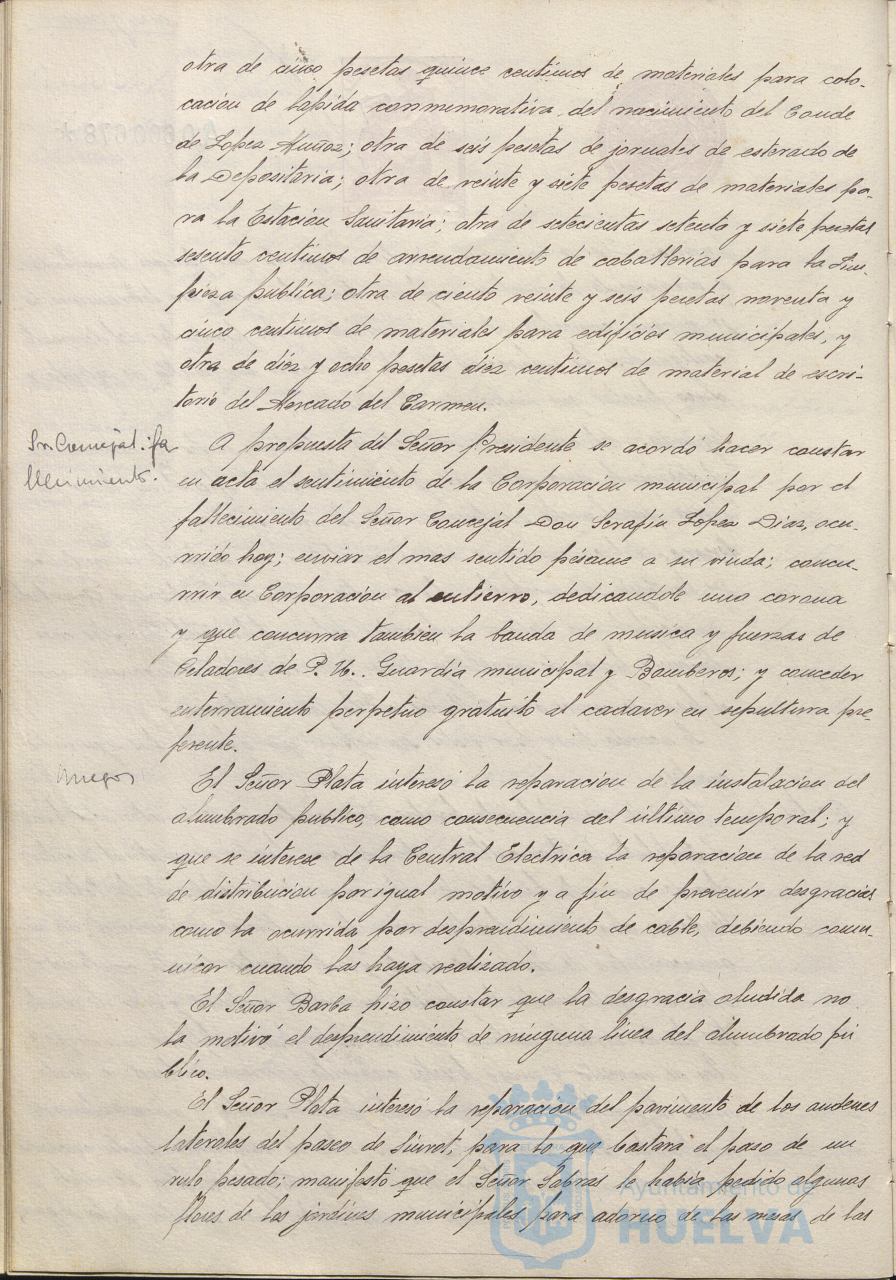 otra de cinco pesetas quince centimos de materiales para colo-
cacion de lapida conmemorativa del nacimiento del Conde
de Lopez Muñoz; otra de seis pesetas de jornales de esterado de
la Depositaria; otra de veinte y siete pesetas de materiales pa-
ra la Estacion Sanitaria; otra de setecientas setenta y siete pesetas
sesenta centimos de arrendamiento de caballerias para la Lim-
pieza publica; otra de ciento veinte y seis pesetas noventa y
cinco centimos de materiales para edificios municipales, y
otra de diez y ocho pesetas diez centimos de material de escri-
torio del Mercado del Carmen.
Sr. Concejal: fa
llecimiento.
A propuesta del Señor Presidente se acordó hacer constar
en acta el sentimiento de la Corporacion municipal por el
fallecimiento del Señor Concejal Don Serafin Lopez Diaz, ocu-
rrido hoy; enviar el mas sentido pésame a su viuda; concu-
rrir en Corporacion al entierro, dedicandole una corona
y que concurra tambien la banda de musica y fuerzas de
Celadores de P. U., Guardia municipal y Bomberos; y conceder
enterramiento perpetuo gratuito al cadaver en sepultura pre-
ferente.
Ruegos
El Señor Plata interesó la reparacion de la instalacion del
alumbrado publico, como consecuencia del último temporal; y
que se interese de la Central Electrica la reparacion de la red
de distribucion por igual motivo y a fin de prevenir desgracias
como la ocurrida por desprendimiento de cable, debiendo comu-
nicar cuando las haya realizado.
El Señor Barba hizo constar que la desgracia aludida no
la motivó el desprendimiento de ninguna linea del alumbrado pú
blico.
El Señor Plata interesó la reparacion del pavimento de los andenes
laterales del paseo de Sinrot, para lo que bastara el paso de un
rulo pesado; manifestó que el Señor Sabrás le habia pedido algunas
flores de los jardines municipales para adorno de las mesas de las
Ayuntamiento de
HUELVA